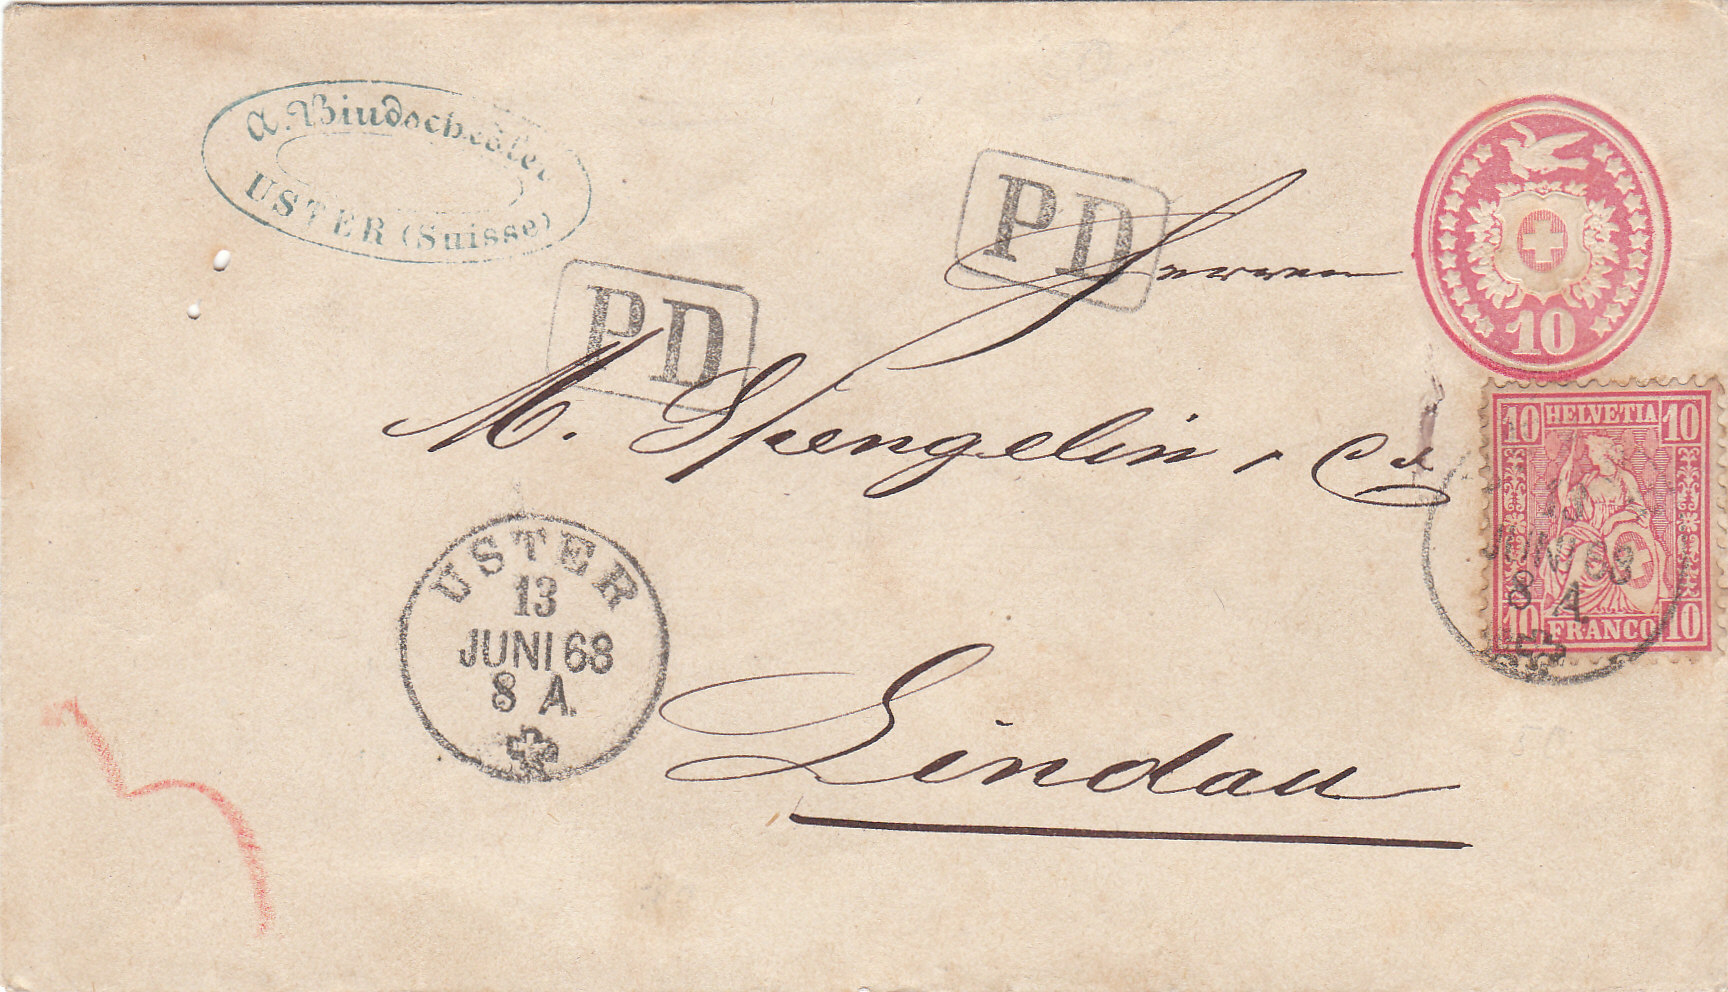 A. Biedermann
USTER (Suisse)
PD
PD
10
Herren
M. Spengelin & Co
10 HELVETIA 10
JUNI 68
8 A.
10 FRANCO 10
USTER
13
JUNI 68
8 A.
Lindau